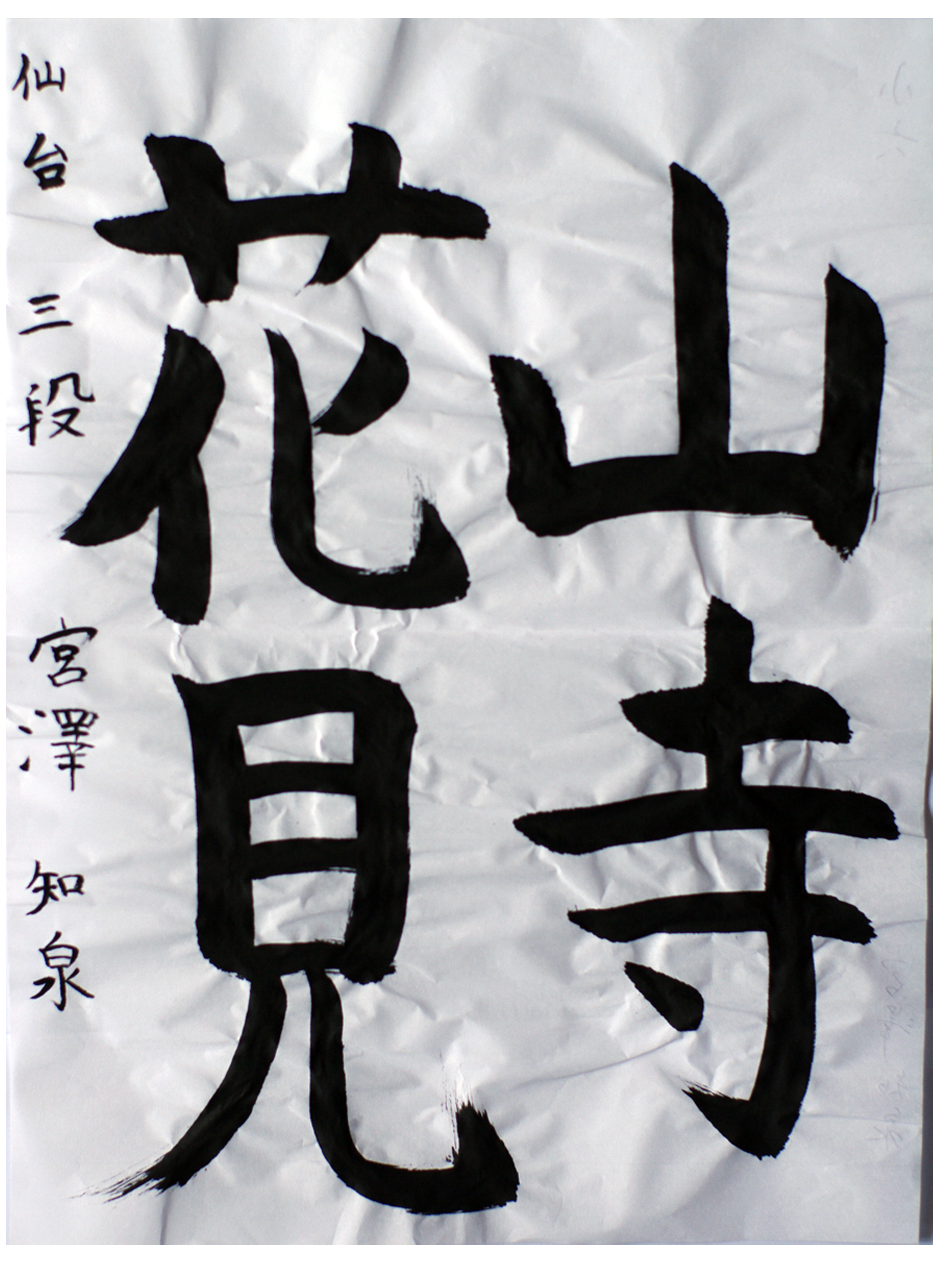 山寺
花見
仙台 三段 宮澤 知泉